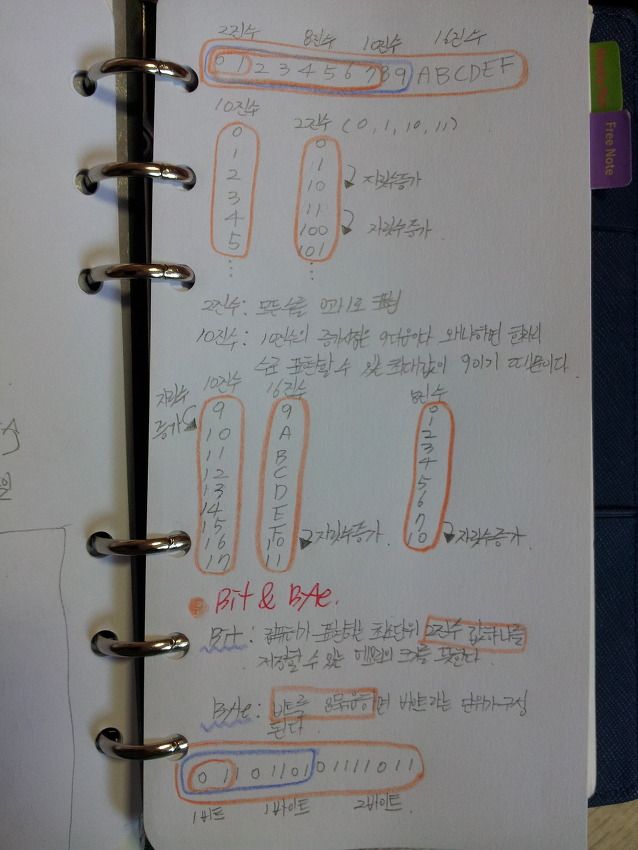 2진수 8진수 10진수 16진수
0 1 2 3 4 5 6 7 8 9 A B C D E F
Free Note
10진수 2진수 (0, 1, 10, 11)
0 0
1 1
2 10 자릿수증가
3 11
4 100 자릿수증가
5 101
⋮ ⋮
2진수: 모든수를 0과 1로 표현
10진수: 10진수의 증가시점은 9다음이다 왜냐하면 한자리
수로 표현할 수 있는 최대값이 9이기 때문이다.
자리수 10진수 16진수 8진수
증가 9 9 0
10 A 1
11 B 2
12 C 3
13 D 4
14 E 5
15 F 6
16 10 자릿수증가 7
17 11 10 자릿수증가
Bit & Byte.
Bit: 컴퓨터가 표현하는 최소단위 2진수 값하나를
저장할 수 있는 메모리의 크기를 뜻한다
Byte: 비트를 8묶음하면 바이트라는 단위가 구성
된다
0 1 1 0 1 1 0 1 0 1 1 1 1 0 1 1
1비트 1바이트 2바이트